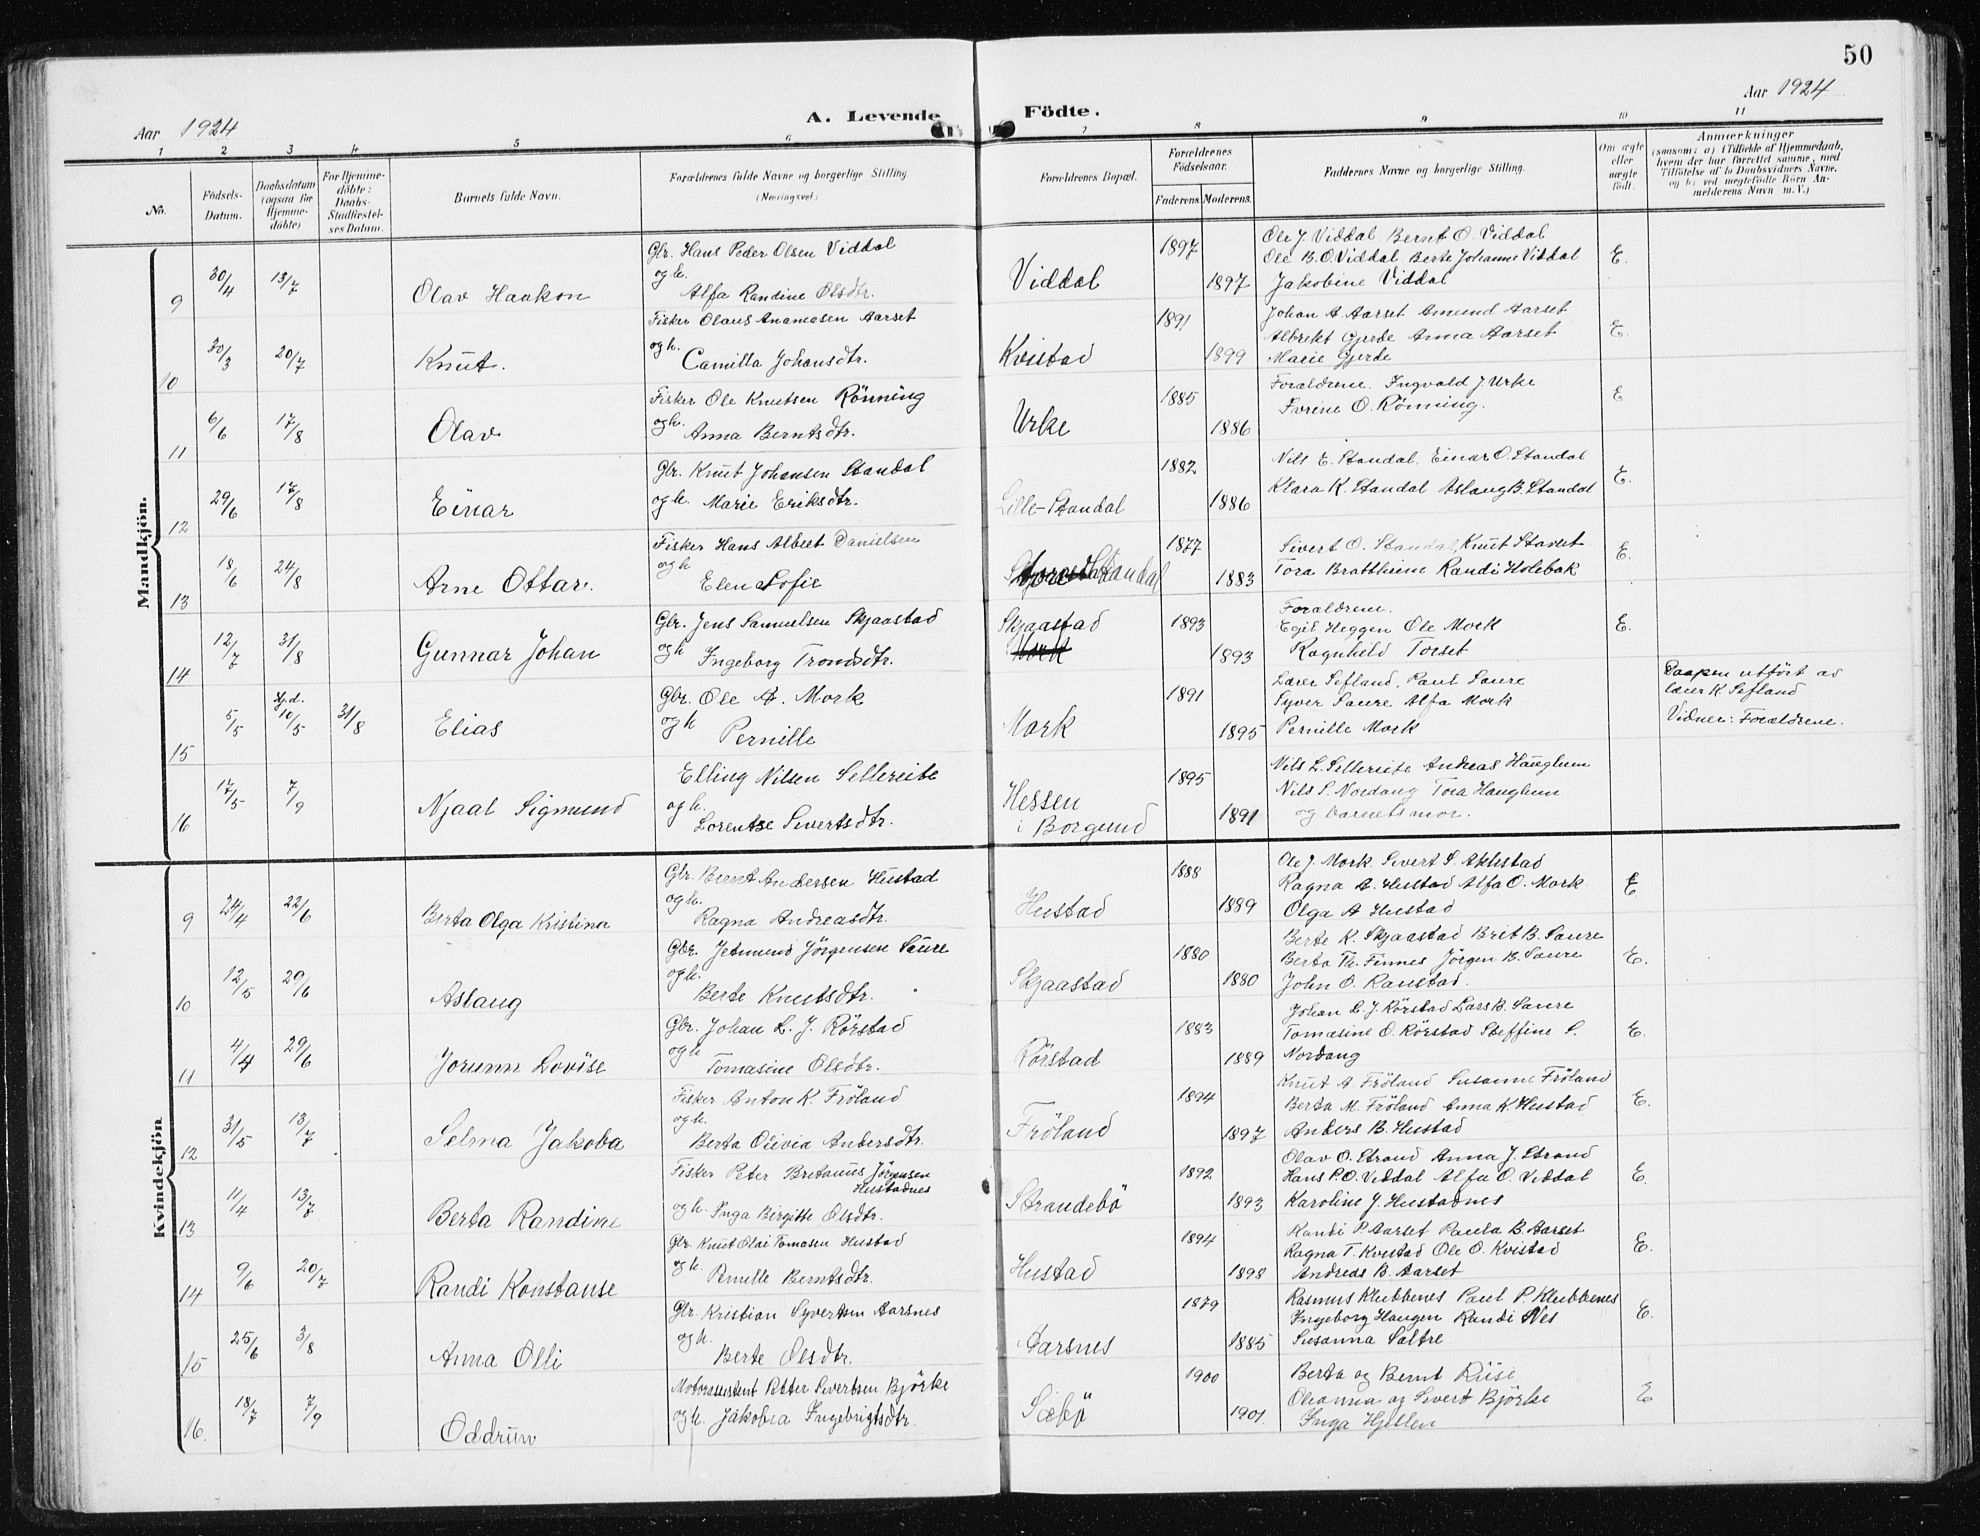 50
Aar 1924
A. Levende Födte.
Aar 1924
1 2 3 4 5 6 7 8 9 10 11
No.
Födsels-Datum.
Daabsdatum (ogsaa for Hjemme-döbte)
For Hjemme-döbte: Daabs-Stadfæstel-ses Datum.
Barnets fulde Navn.
Forældrenes fulde Navne og borgerlige Stilling (Næringsvei)
Forældrenes Bopæl.
Forældrenes Födselsaar.
Faderens. Moderens.
Faddernes Navne og borgerlige Stilling.
Om ægte eller uægte födt.
Anmærkninger
(saasom: a) i Tilfælde af Hjemmedaab, hvem der har forrettet samme, med Tilföielse af to Daabsvidners Navne, og b) ved uegtefödte Börn An-melderens Navn m. V.)
Mandkjön.
9 30/4 13/7 Olav Haakon
Glr. Hans Peder Olsen Viddal
og h. Alfa Randine Olsdtr.
Viddal 1897 1897
Ole J. Viddal. Bernt O. Viddal
Ole B. O. Viddal. Berte Johanne Viddal
Jakobine Viddal
E.
10 30/3 20/7 Knut.
Fisker Olaus Ananiasen Aarset
og h. Camilla Johansdtr.
Kvistad 1891 1899
Johan A. Aarset Amund Aarset
Albrekt Gjerde Anna Aarset
Marie Gjerde
E.
11 6/6 17/8 Olav
Fisker Ole Knutsen Rönning
og h. Anna Berntsdtr.
Urke 1885 1886
Forældrene. Ingvald J. Urke
O. Rönning.
E
12 29/6 17/8 Einar
Glr. Knut Johansen Standal
og h. Marie Eriksdtr.
Lille-Standal 1882 1886
Nils E. Standal. Einar O. Standal
Klara K. Standal Aslaug B. Standal
E.
13 18/6 24/8 Arne Ottar.
Fisker Hans Albert Danielsen
og h Elen Sofie
Standal 1877 1883
Sivert O. Standal, Knut Stavset
Tora Brattheim Randi Holebak
E.
14 12/7 31/8 Gunnar Johan
Glr. Jens Samuelsen Skjaastad
og h Ingeborg Trondsdtr.
Skjaastad
Mork
1893 1893
Forældrene.
Egil Heggen Ole Mork
Ragnhild Torset
E.
15 5/5 Hj.d. 10/5 31/8 Elias
Gbr. Ole A. Mork
og h Pernille
Mork 1891 1895
Lærer Sefland, Paul Saure
Syver Saure Alfa Mork
Pernille Mork
Daapen utfört av
lærer K Sefland
Vidner: Forældrene.
16 17/5 7/9 Njaal Sigmund
Elling Nilsen Sellereite
og h. Lorentse Sivertsdtr.
Hessen
i Borgund
1895 1891
Nils L. Sellereite Andreas Hauglum
Nils S. Nordang Tora Hauglum
og barnets mor.
Kvindekjön
9 24/4 22/6 Berta Olga Kristina
Glr. Bernt Andersen Hustad
og h. Ragna Andreasdtr.
Hustad 1888 1889
Ole J. Mork Sivert S. Aklestad
Ragna A. Hustad Alfa O. Mork
Olga A Hustad
E
10 12/5 29/6 Aslaug
Gbr. Jetmund Jörgensen Saure
og h. Berte Knutsdtr.
Skjaastad 1880 1880
Berte K. Skjaastad Brit B. Saure
Berta Th. Finnes Jörgen B. Saure
John O. Ranstad.
E.
11 4/4 29/6 Jorunn Lovise
Glr. Johan L. J. Rörstad
og h Tomasine Olsdtr.
Rörstad 1883 1889
Johan L. J. Rörstad Lars B. Saure
Tomasine O. Rörstad Steffine S.
Nordang
E.
12 31/5 13/7 Selma Jakoba
Fisker Anton K. Fröland
og h. Berta Olivia Andersdtr.
Fröland 1894 1897
Knut A. Fröland Susanne Fröland
Berta M. Fröland Anna K. Hustad
Anders B. Hustad
E.
13 11/4 13/7 Berta Randine
Fisker Peter Bretanus Jörgensen
Hustadnes
og h. Inga Birgitte Olsdtr.
Strandebö 1892 1893
Olav O. Strand Anna J. Strand
Hans P. O. Viddal Alfa O. Viddal
Karoline J. Hustadnes
E.
14 9/6 20/7 Randi Konstanse
Glr Knut Olai Tomasen Hustad
og h. Pernille Berntsdtr.
Hustad 1894 1898
Randi P. Aarset Paula B. Aarset
Ragna T. Kvistad Ole O. Kvistad
Andreas B. Aarset
E.
15 25/6 3/8 Anna Olli
Glr Kristian Syvertsen Aarsnes
og h. Berte Olsdtr.
Aarsnes 1879 1885
Rasmus Klubbenes Paul P Klubbenes
Ingeborg Haugen Randi Nes
Susanna Sætre
E.
16. 18/7 7/9 Oddrun
Motorassistent Petter Sivertsen Björke
og h. Jakobia Ingebrigtsdtr.
Sæbö 1900 1901.
Berta og Bernt Riise
Oleanna og Sivert Björke
Inga Hjellen
E